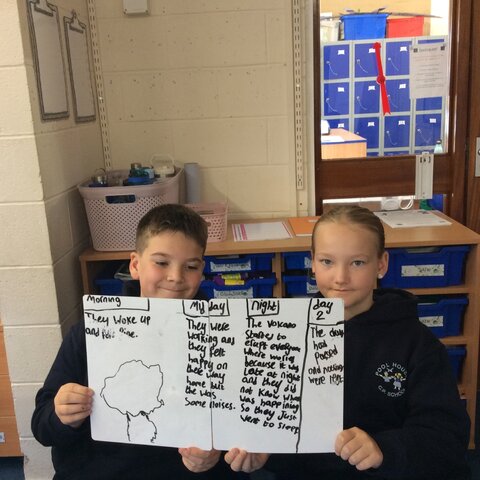 Morning
They woke up
and felt fine.
My day
They were
working and
they felt
happy on
their way
home but
the was
some noises.
Night
The Volcano
Started to
erupt everyone
where worring
because it was
late at night
and they did
not know what
was happining
so they just
went to sleep
day
2
The day
had
passed
and nothing
were left
POOL HOUSE
SCHOOL